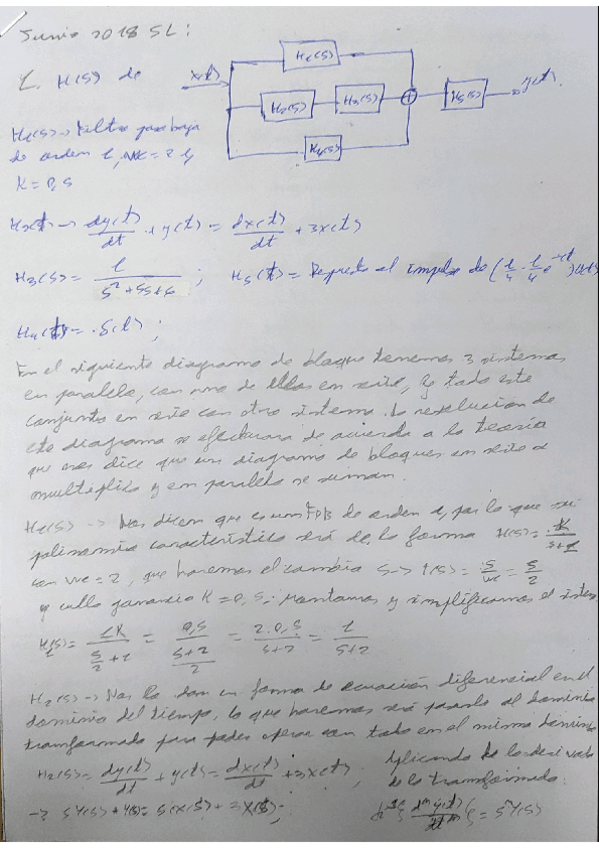 Junio 2018 SL:
1. H(s) de x(t) H1(s) H2(s) H3(s) H4(s) H5(s) y(t)
H1(s) → Filtro paso baja
de orden 1, wc = 2 y
K = 0,5
H2(t) → dy(t)/dt + y(t) = dx(t)/dt + 3x(t)
H3(s) = 1/(s²+5s+6) ; H5(t) = Respuesta al impulso de
H4(t) = δ(t) ;
En el siguiente diagrama de bloque tenemos 3 sistemas
en paralelo, con uno de ellos en serie, y todo este
conjunto en serie con otro sistema. La resolución de
este diagrama se efectuara de acuerdo a la teoría
que nos dice que un diagrama de bloques en serie se
multiplica y en paralelo se suman.
H1(s) → Nos dicen que es un FPB de orden 1, por lo que su
polinomio característico será de la forma H(s) = K/(s+1)
con wc = 2, que haremos el cambio s → f(s) = s/wc = s/2
y ganancia K = 0,5. Montamos y simplificamos el
H1(s) = 1K/(s/2+1) = 0,5/((s+2)/2) = 2·0,5/(s+2) = 1/(s+2)
H2(s) → Nos lo dan en forma de ecuación diferencial en el
dominio del tiempo, lo que haremos será pasarlo al dominio
transformado para poder operar con todo en el mismo dominio
H2(s) = dy(t)/dt + y(t) = dx(t)/dt + 3x(t) ; Aplicando la derivada
de la transformada:
→ sY(s) + Y(s) = sX(s) + 3X(s) ;